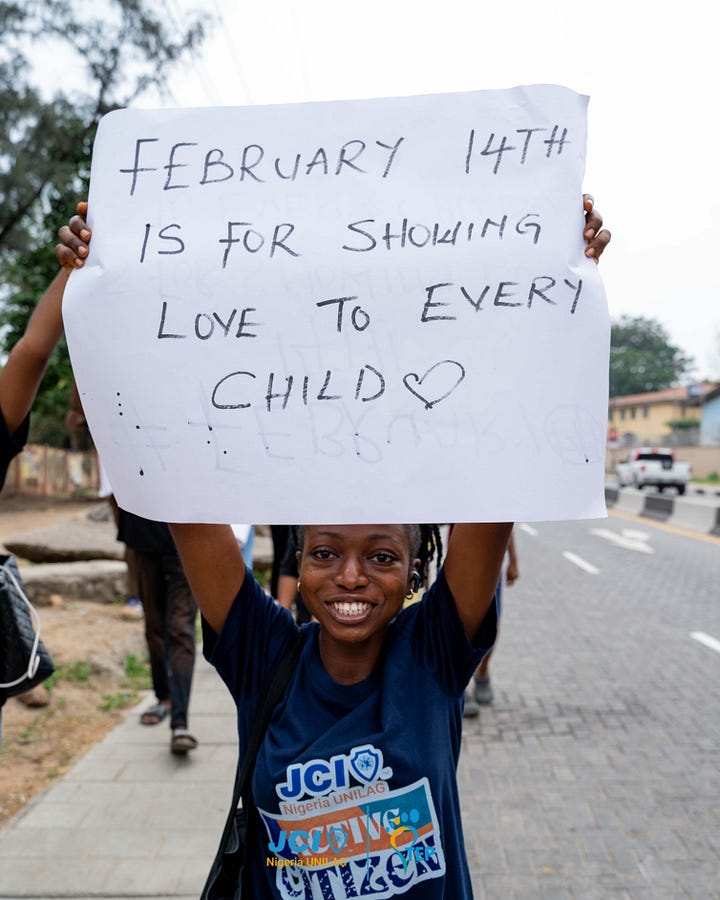 FEBRUARY 14TH
IS FOR SHOWING
LOVE TO EVERY
CHILD♡
JCI
Nigeria UNILAG
JCI
Nigeria UNILAG